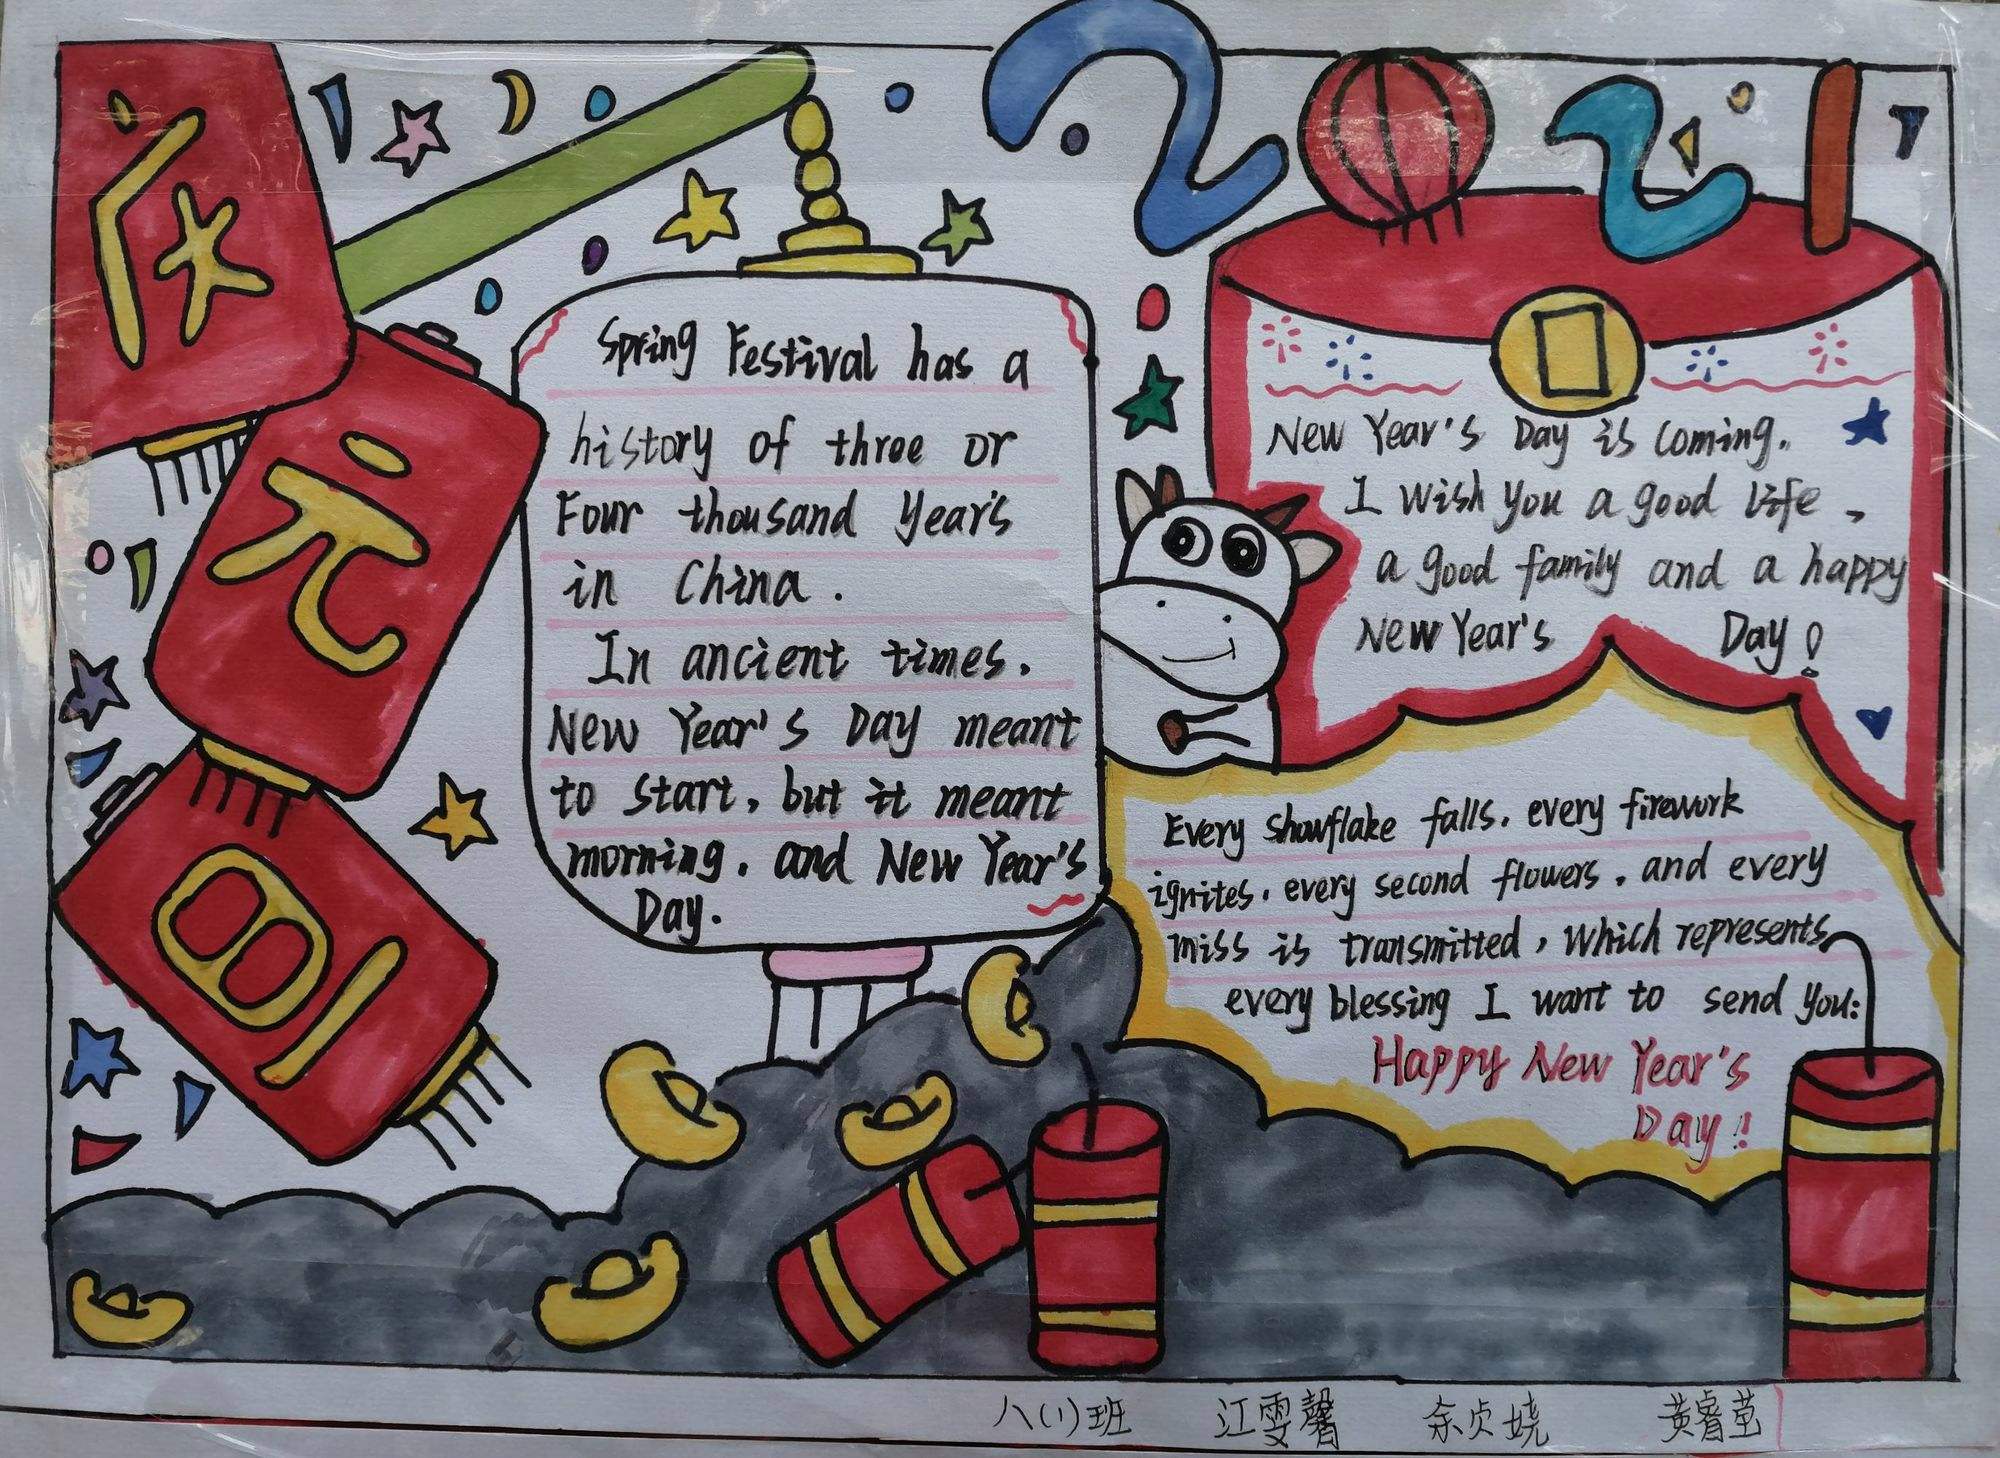 庆
元
旦
2021
Spring Festival has a
history of three or
Four thousand year's
in China.
In ancient times,
New Year's Day meant
to start, but it meant
morning, and New Year's
Day.
New Year's Day is coming.
I wish you a good life,
a good family and a happy
New Year's Day!
Every showflake falls, every firework
ignites, every second flowers, and every
miss is transmitted, which represents
every blessing I want to send you:
Happy New Year's
Day!!
八(1)班 江雯馨 余贞娆 黄睿茔